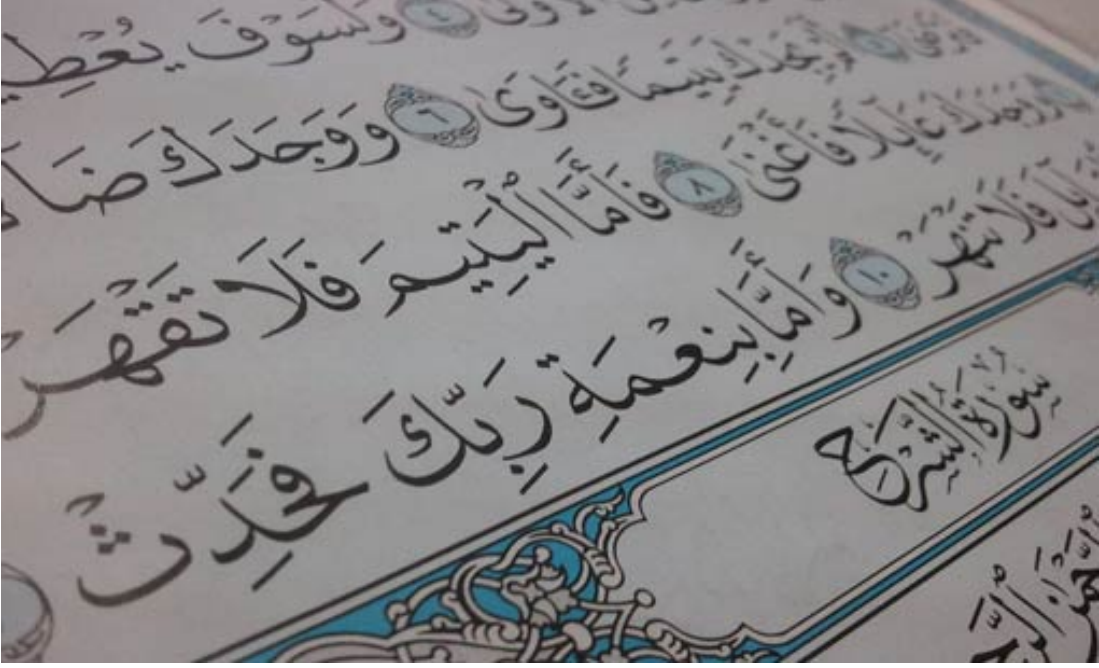 ٱلْأُولَىٰ ٤ وَلَسَوْفَ يُعْطِي
أَلَمْ يَجِدْكَ يَتِيمًا فَـَٔاوَىٰ ٦ وَوَجَدَكَ ضَا
وَوَجَدَكَ عَآئِلًا فَأَغْنَىٰ ٨ فَأَمَّا ٱلْيَتِيمَ فَلَا تَقْهَرْ
فَلَا تَنْهَرْ ١٠ وَأَمَّا بِنِعْمَةِ رَبِّكَ فَحَدِّثْ
سُورَةُ الشَّرْحِ